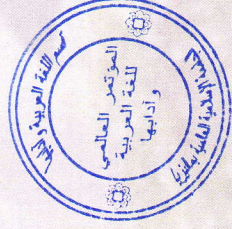 قسم اللغة العربية وآدابها
المؤتمر العالمي
للغة العربية
وآدابها
الجامعة الإسلامية العالمية بماليزيا